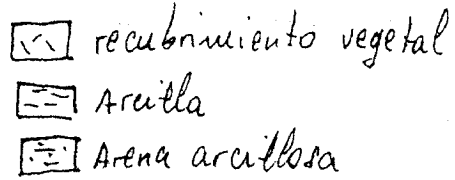 recubrimiento vegetal
Arcilla
Arena arcillosa